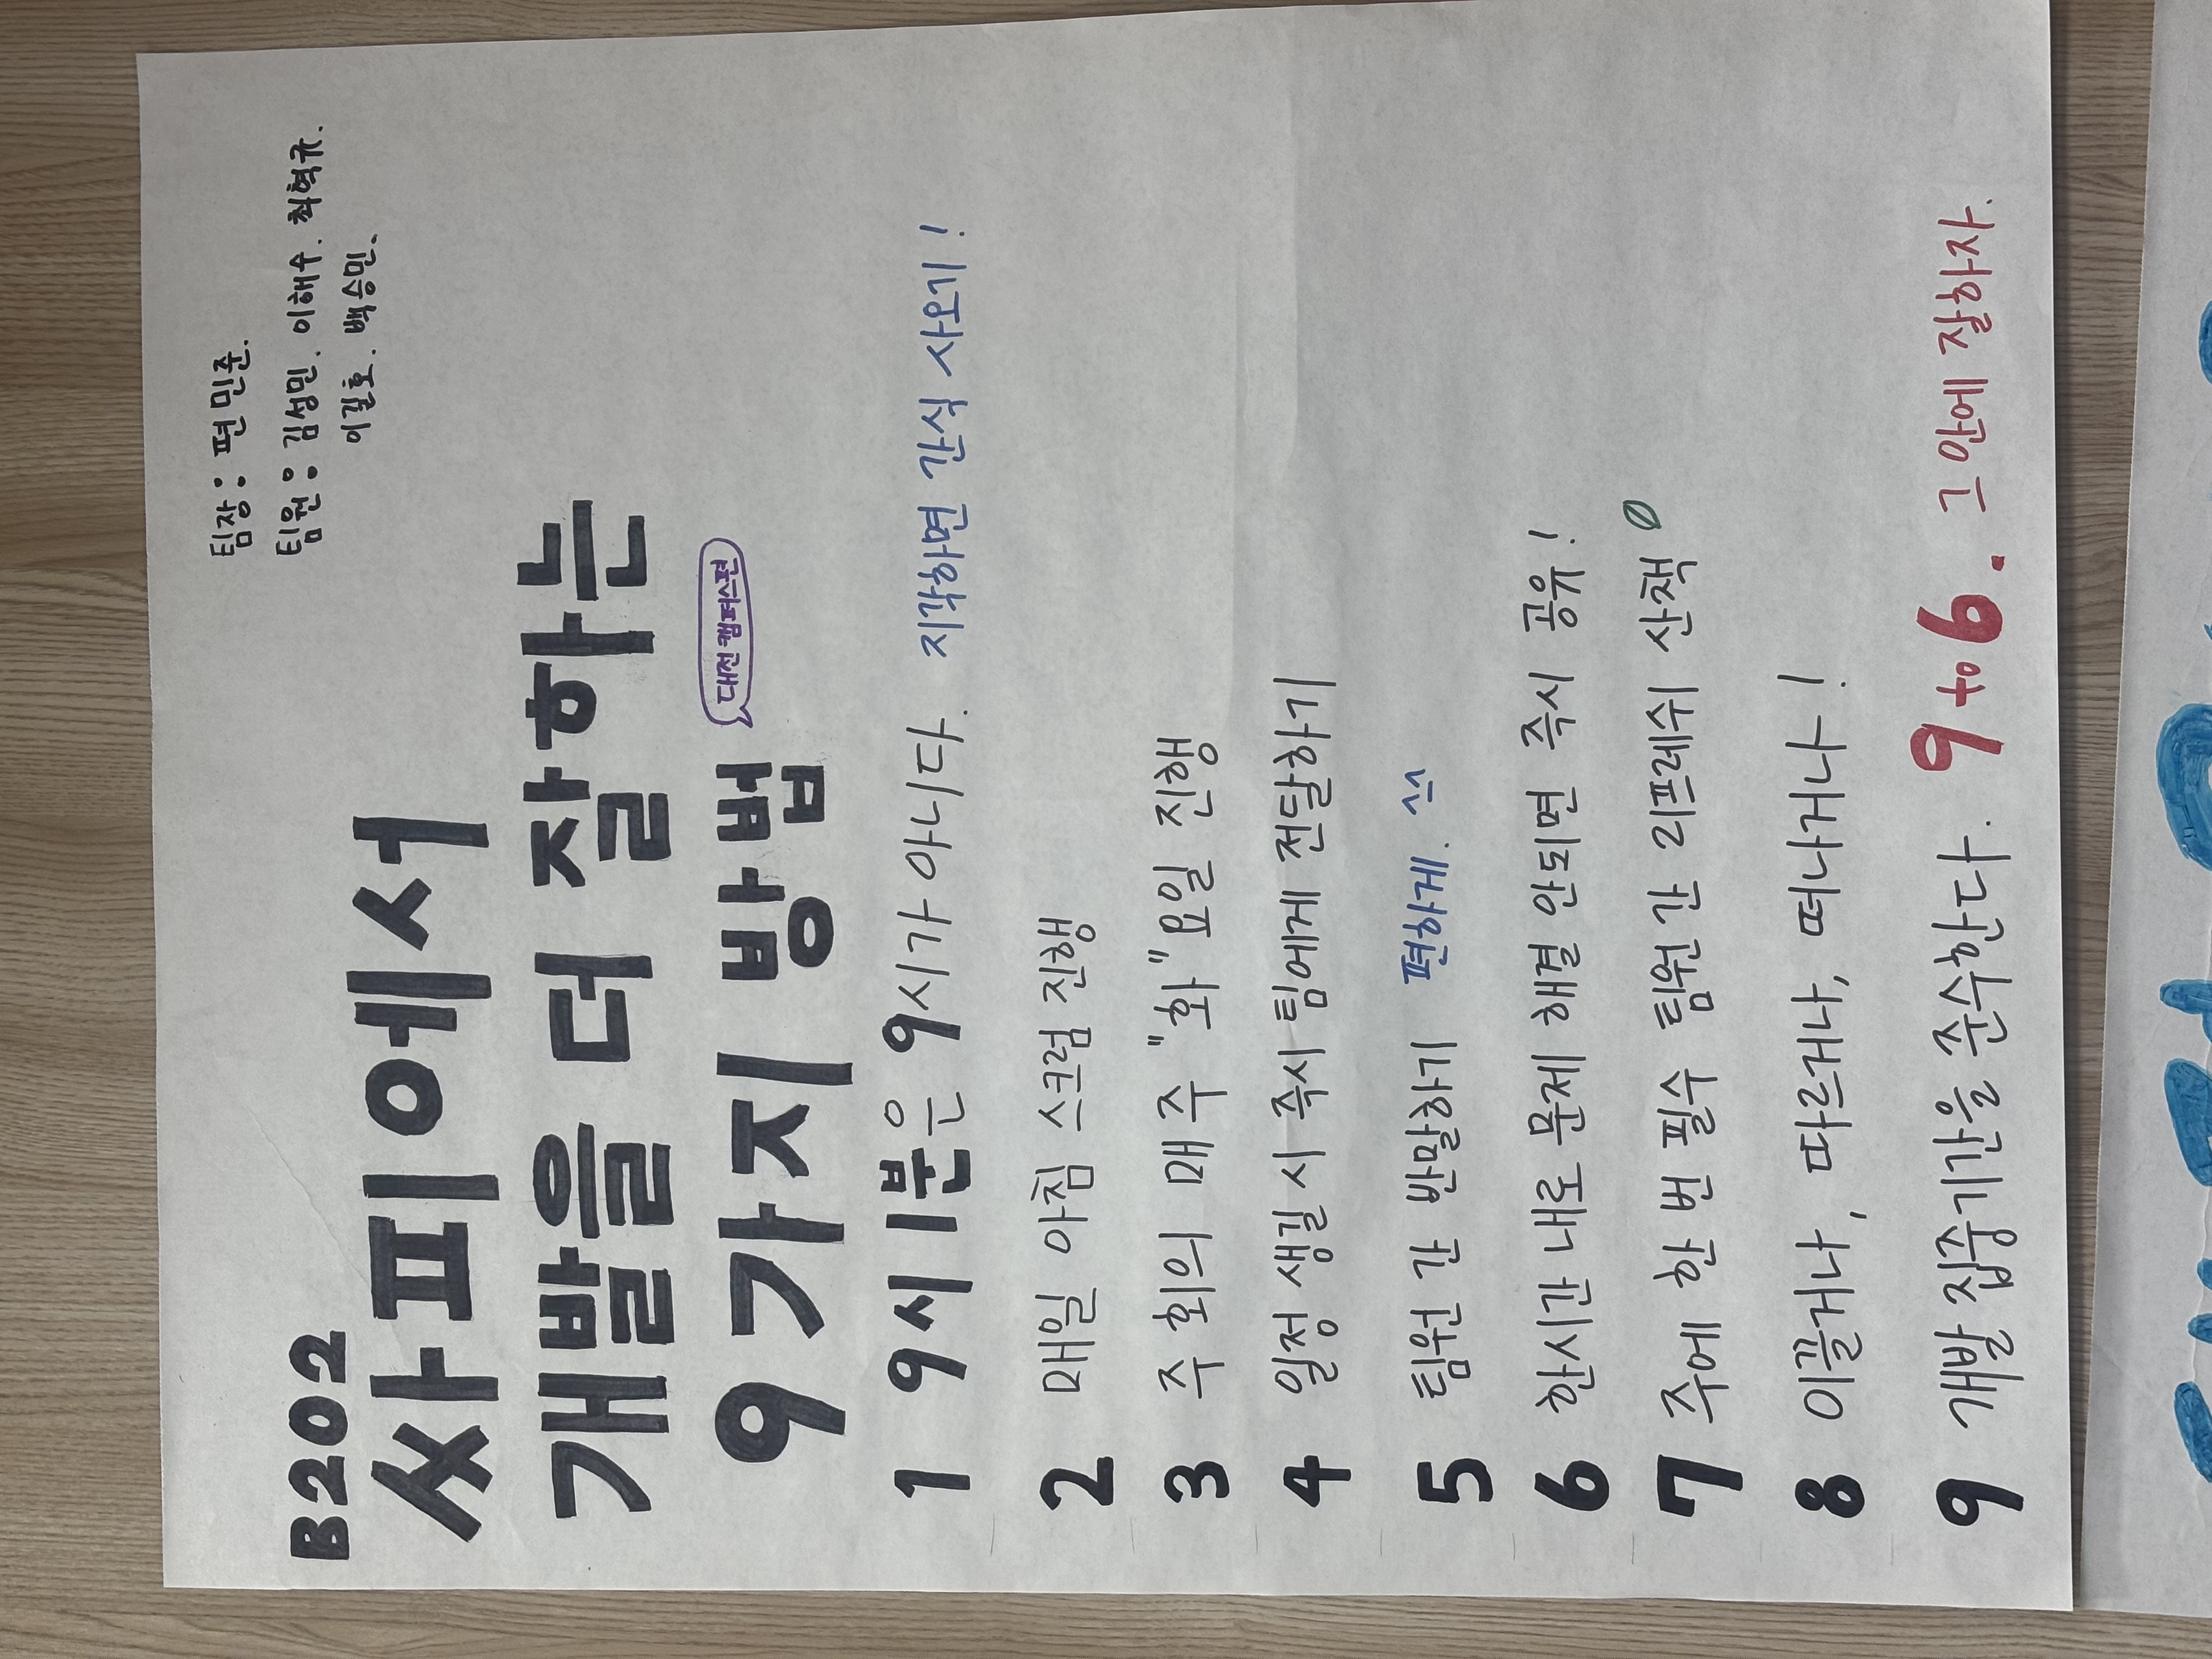 팀장 : 편민준.
팀원 : 김성민. 이해수. 최혁규.
이길호. 백승민.
B202
싸피에서
개발을 더 잘하는
9가지 방법
대전캠퍼스편
1 9시 1분은 9시가 아니다. 지각하면 간식 사오기!
2 매일 아침 스크럼 진행
3 주 회의 매주 "화"요일 진행
4 일정 생길 시 즉시 팀에게 전달하기
5 팀원 간 반말하기 편하게. ^^
6 한시간 내로 문제 해결 안되면 즉시 공유!
7 주에 한 번 필수 팀원 간 리프레쉬 산책
8 이끌거나, 따르거나, 떠나거나!
9 개발 집중기간을 준수한다. 9 to 6. 그 안에 잘하자.